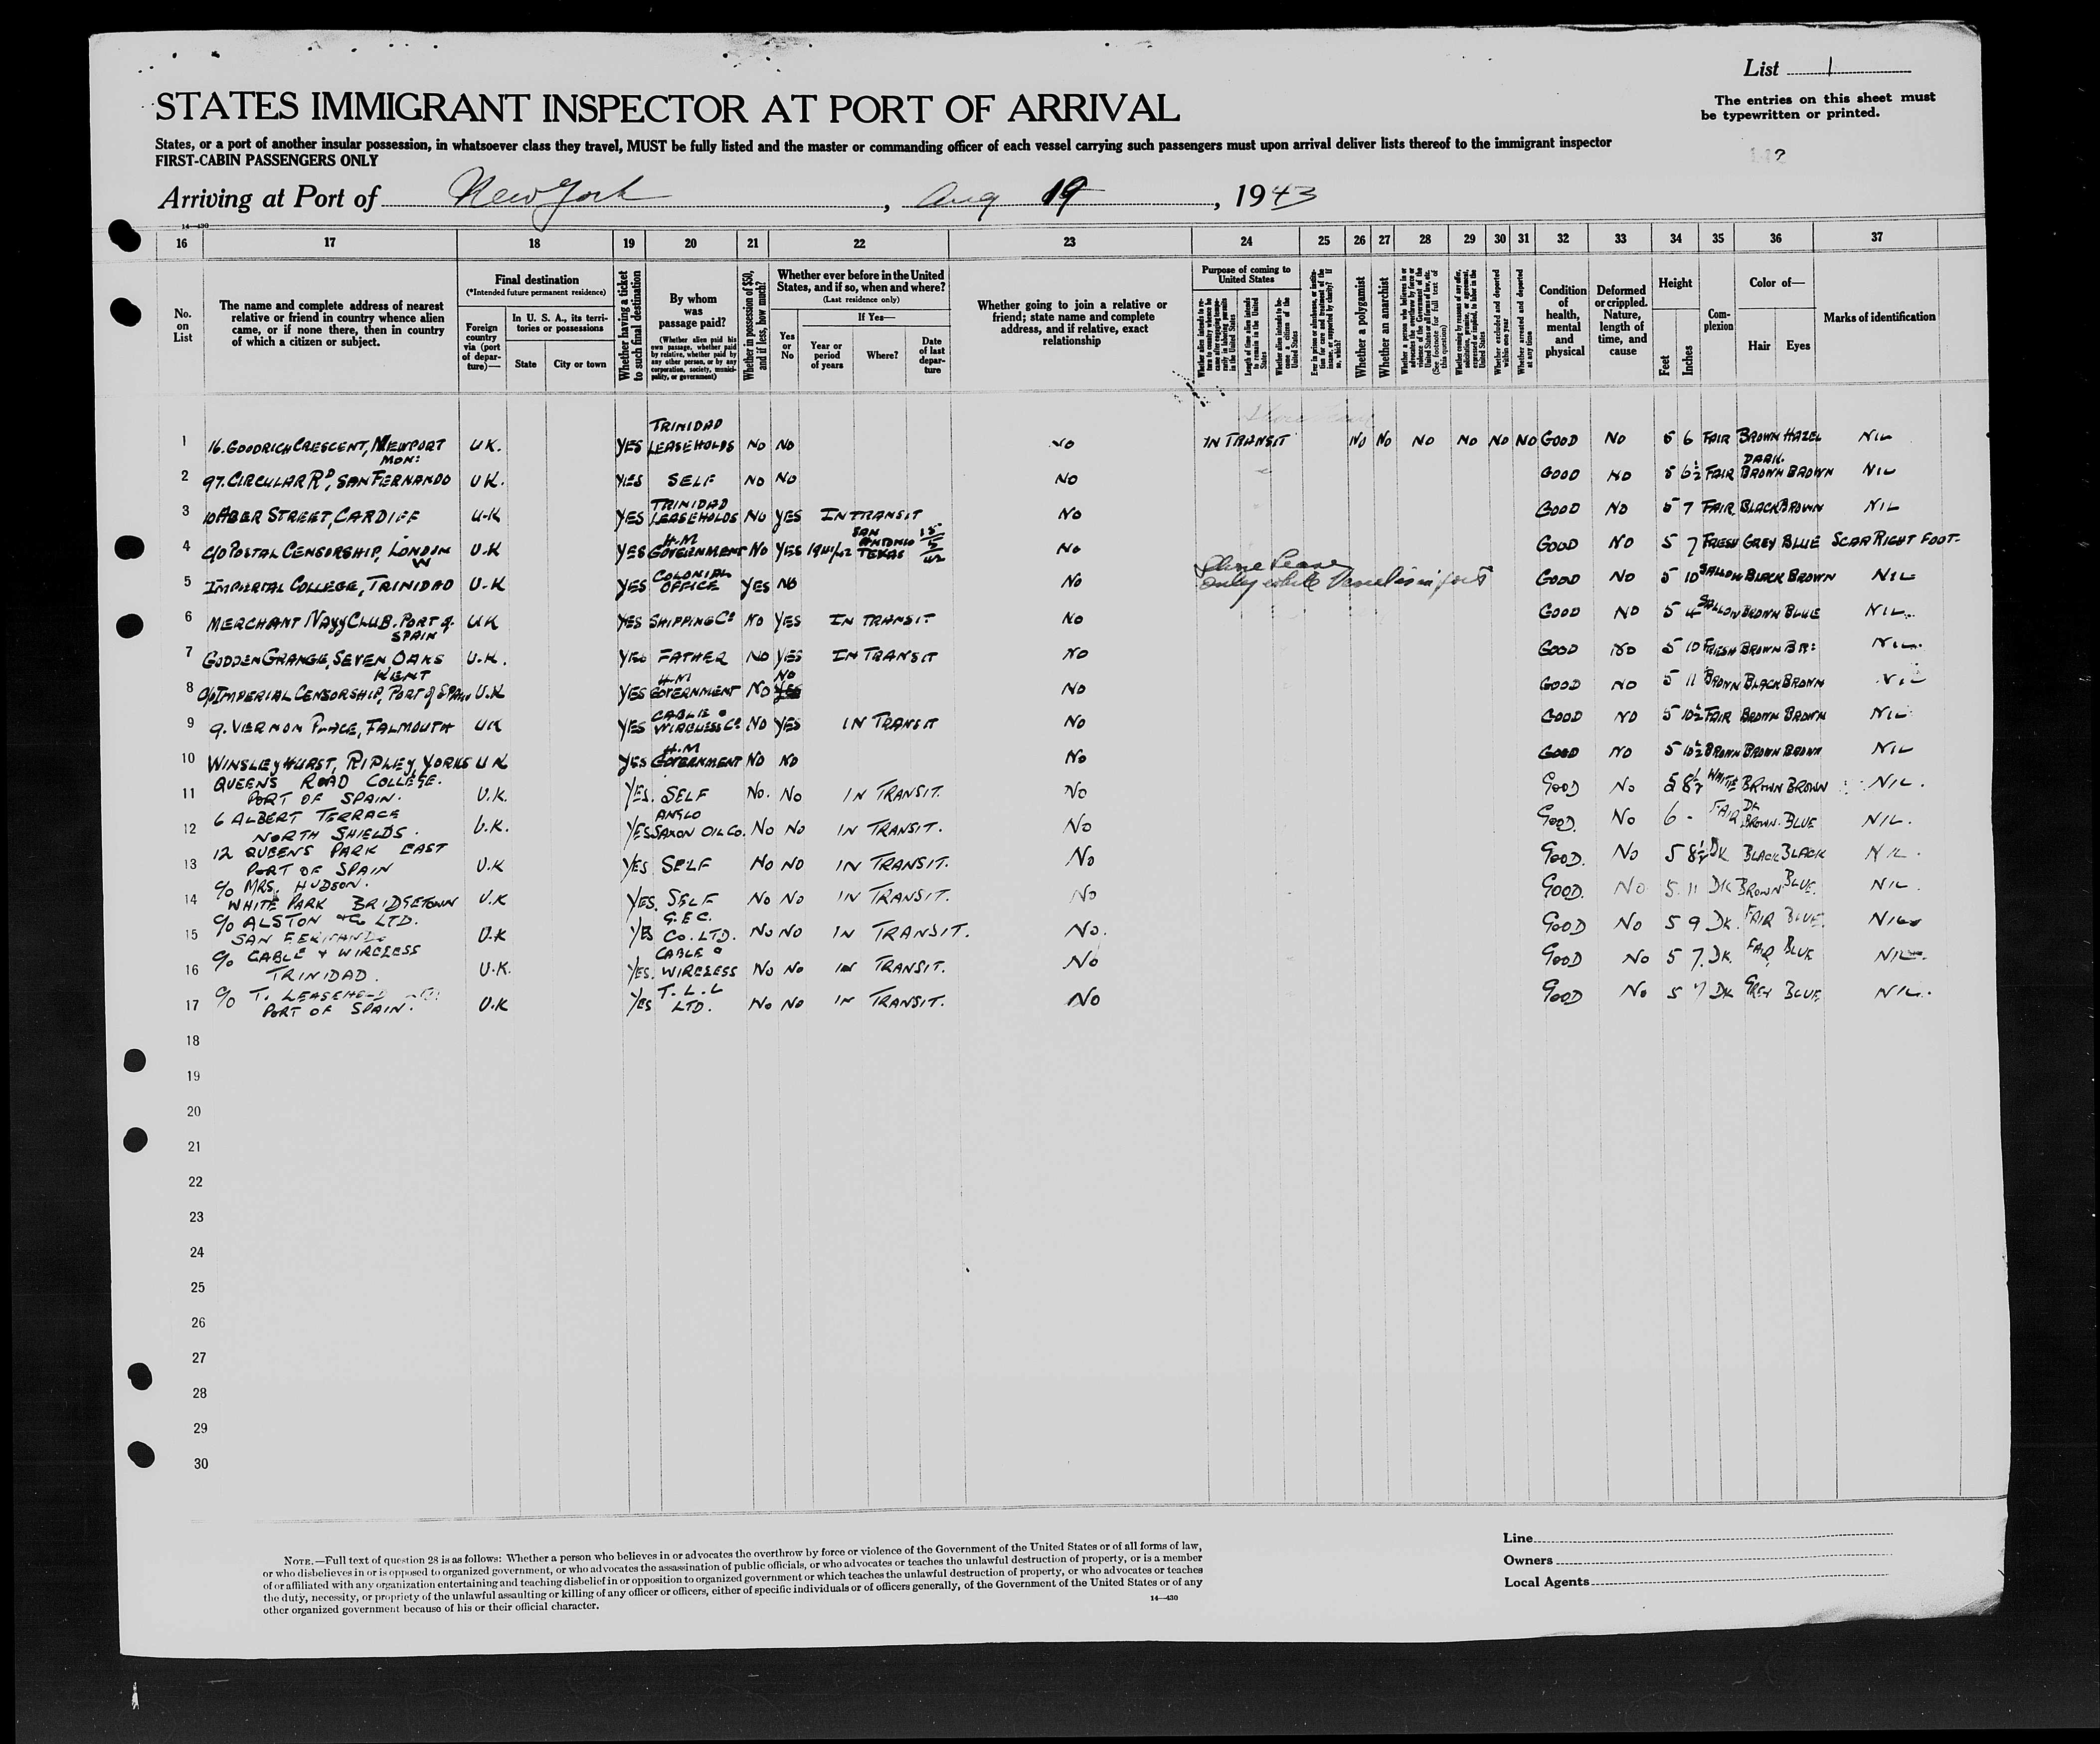 List 1
The entries on this sheet must
be typewritten or printed.
STATES IMMIGRANT INSPECTOR AT PORT OF ARRIVAL
States, or a port of another insular possession, in whatsoever class they travel, MUST be fully listed and the master or commanding officer of each vessel carrying such passengers must upon arrival deliver lists thereof to the immigrant inspector
FIRST-CABIN PASSENGERS ONLY
Arriving at Port of New York, Aug 19, 1943
14—430
16 17 18 19 20 21 22 23 24 25 26 27 28 29 30 31 32 33 34 35 36 37
No. on List
The name and complete address of nearest
relative or friend in country whence alien
came, or if none there, then in country
of which a citizen or subject.
Final destination
(*Intended future permanent residence)
Foreign country via (port of departure)—
In U. S. A., its territories or possessions
State
City or town
Whether having a ticket to such final destination
By whom was passage paid?
(Whether alien paid his own passage, whether paid by relative, whether paid by any other person, or by any corporation, society, municipality, or government)
Whether in possession of $50, and if less, how much?
Whether ever before in the United States, and if so, when and where?
(Last residence only)
Yes or No
If Yes—
Year or period of years
Where?
Date of last departure
Whether going to join a relative or
friend; state name and complete
address, and if relative, exact
relationship
Purpose of coming to United States
Whether alien intends to return to country whence he came after engaging temporarily in laboring pursuits in the United States
Length of time alien intends to remain in the United States
Whether alien intends to become a citizen of the United States
Ever in prison or almshouse, or institution for care and treatment of the insane, or supported by charity? If so, which?
Whether a polygamist
Whether an anarchist
Whether a person who believes in or advocates the overthrow by force or violence of the Government of the United States or all forms of law, etc. (See footnote for full text of this question)
Whether coming by reason of any offer, solicitation, promise, or agreement, expressed or implied, to labor in the United States
Whether excluded and deported within one year
Whether arrested and deported at any time
Condition of health, mental and physical
Deformed or crippled. Nature, length of time, and cause
Height
Feet
Inches
Complexion
Color of—
Hair
Eyes
Marks of identification
1 16. GOODRICH CRESCENT, NEWPORT MON: UK. YES TRINIDAD LEASEHOLDS NO NO NO IN TRANSIT NO NO NO NO NO NO GOOD NO 5 6 FAIR BROWN HAZEL NIL
2 97. CIRCULAR RD, SAN FERNANDO UK. YES SELF NO NO NO GOOD NO 5 6½ FAIR DARK BROWN BROWN NIL
3 10 ABER STREET, CARDIFF U-K YES TRINIDAD LEASEHOLDS NO YES IN TRANSIT NO GOOD NO 5 7 FAIR BLACK BROWN NIL
4 C/O POSTAL CENSORSHIP, LONDON W U.K YES H.M GOVERNMENT NO YES 1941/42 SAN ANTONIO TEXAS 15/5/42 NO GOOD NO 5 7 FRESH GREY BLUE SCAR RIGHT FOOT-
Shore Leave
only while Vessel is in port
5 IMPERIAL COLLEGE, TRINIDAD U-K YES COLONIAL OFFICE YES NO NO GOOD NO 5 10 SALLOW BLACK BROWN NIL
6 MERCHANT NAVY CLUB. PORT of SPAIN UK YES SHIPPING Co NO YES IN TRANSIT NO GOOD NO 5 4 SALLOW BROWN BLUE NIL.
7 GODDEN GRANGE, SEVEN OAKS KENT U.K. YES FATHER NO YES IN TRANSIT NO GOOD NO 5 10 FRESH BROWN BR: NIL.
8 c/o IMPERIAL CENSORSHIP, PORT of SPAIN U.K YES H.M GOVERNMENT NO NO YES NO GOOD NO 5 11 BROWN BLACK BROWN NIL
9 9. VERNON PLACE, FALMOUTH UK YES CABLE & WIRELESS Co NO YES IN TRANSIT NO GOOD NO 5 10½ FAIR BROWN BROWN NIL
10 WINSLEY HURST, RIPLEY, YORKS UK YES H.M GOVERNMENT NO NO NO GOOD NO 5 10½ BROWN BROWN BROWN NIL
11 QUEENS ROAD COLLEGE. PORT OF SPAIN. U.K. YES. SELF NO. NO IN TRANSIT. NO GOOD NO 5 8½ WHITE BROWN BROWN NIL.
12 6 ALBERT TERRACE NORTH SHIELDS. U.K. YES ANGLO SAXON OIL CO. NO NO IN TRANSIT. NO GOOD. NO 6 - FAIR DK BROWN. BLUE NIL.
13 12 QUEENS PARK EAST PORT OF SPAIN U.K YES SELF NO NO IN TRANSIT. NO GOOD. NO 5 8½ DK BLACK BLACK NIL.
14 c/o MRS. HUDSON. WHITE PARK BRIDGETOWN U.K YES. SELF NO NO IN TRANSIT. NO GOOD. NO 5 11 DK BROWN BLUE. NIL.
15 c/o ALSTON & Co LTD. SAN FERNANDO U.K YES G.E.C. CO. LTD. NO NO IN TRANSIT. NO. GOOD NO 5 9 DK. FAIR BLUE. NIL
16 c/o CABLE & WIRELESS TRINIDAD. U.K. YES. CABLE & WIRELESS NO NO IN TRANSIT. NO GOOD NO 5 7. DK. FAIR BLUE NIL
17 c/o T. LEASEHOLD PORT OF SPAIN. U.K YES T.L.L LTD. NO NO IN TRANSIT. NO GOOD NO 5 7 DK GREY BLUE NIL.
18
19
20
21
22
23
24
25
26
27
28
29
30
NOTE.—Full text of question 28 is as follows: Whether a person who believes in or advocates the overthrow by force or violence of the Government of the United States or of all forms of law,
or who disbelieves in or is opposed to organized government, or who advocates the assassination of public officials, or who advocates or teaches the unlawful destruction of property, or is a member
of or affiliated with any organization entertaining and teaching disbelief in or opposition to organized government or which teaches the unlawful destruction of property, or who advocates or teaches
the duty, necessity, or propriety of the unlawful assaulting or killing of any officer or officers, either of specific individuals or of officers generally, of the Government of the United States or of any
other organized government because of his or their official character.
14—430
Line
Owners
Local Agents